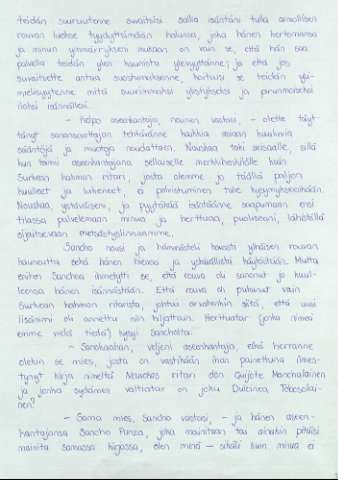 teidän suuruutenne suvaitsisi sallia isäntäni tulla armollisen
rouvan luokse tyydyttämään halunsa, joka hänen kertomansa
ja minun ymmärrykseni mukaan on vain se, että hän saa
palvella teidän ylvästä kauneutta ylenyyttänne; ja että jos
suvaitsette antaa suostumuksenne, koituisi se teidän yli-
mielisyytenne mitä suurimmaksi ylistykseksi ja
iloksi isännälleni.
– Kelpo aseenkantaja, nainen vastasi, – olette täyt-
tänyt sanansaattajan tehtävänne kaikkia asiaan kuuluvia
sääntöjä ja muotoja noudattaen. Nouskaa toki seisaalle, sillä
kun toimii aseenkantajana sellaiselle merkkihenkilölle kuin
Surkean hahmon ritari, josta olemme jo täällä paljon
kuulleet ja lukeneet, ei polvistuminen tule kysymykseenkään.
Nouskaa, ystäväiseni, ja pyytäkää isäntäänne saapumaan ensi
tilassa palvelemaan minua ja herttuaa, puolisoani, lähistöllä
sijaitsevaan metsästyslinnaamme.
Sancho nousi ja hämmästeli kovasti ylhäisen rouvan
kauneutta sekä hänen hienoa ja ystävällistä käytöstään. Mutta
eniten Sanchoa ihmetytti se, että rouva oli sanonut jo kuul-
leensa hänen isännästään. Että rouva oli puhunut vain
Surkean hahmon ritarista, johtui arvatenkin siitä, että uusi
lisänimi oli annettu niin hiljattain. Herttuatar (jonka nimeä
emme vielä tiedä) kysyi Sancholta:
– Sanokaahan, veljeni aseenkantaja, eikö herranne
olekin se mies, josta on vastikään ihan painettuna ilmes-
tynyt kirja nimeltä Neuvokas ritari don Quijote Manchalainen
ja jonka sydämen valtiatar on joku Dulcinea Tobosolai-
nen?
– Sama mies, Sancho vastasi, – ja hänen aseen-
kantajansa Sancho Panza, joka mainitaan tai ainakin pitäisi
mainita samassa kirjassa, olen minä – ellei kun minua ei